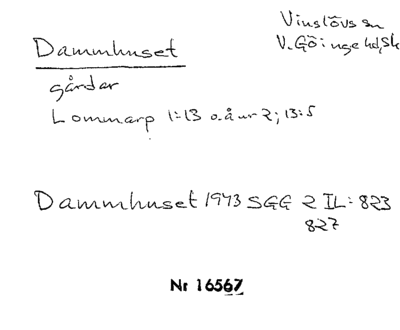 Dammhuset
Vinslövs sn
V. Göinge hd, Sk
gårdar
Lommarp 1:13 o. å nr 2; 13:5
Dammhuset 1973 SGG 2 IL: 823
827
Nr 16567